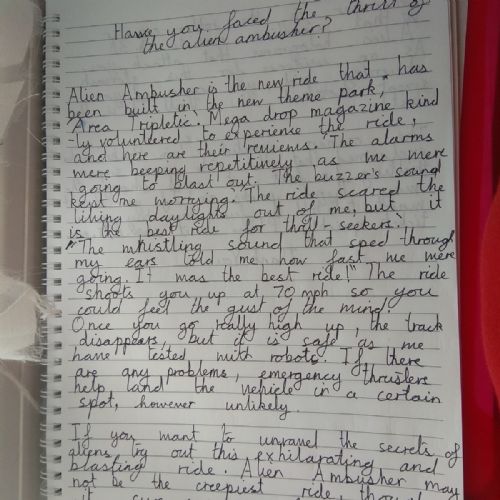 Have you faced the thrill of
the alien ambusher?
Alien Ambusher is the new ride that has
been built in the new theme park,
"Area Tripletic". Mega drop magazine kind
-ly volunteered to experience the ride,
and here are their reviews. "The alarms
were beeping repetitively as we were
going to blast out. The buzzer's sound
kept me worrying. The ride scared the
living daylights out of me, but it
is the best ride for thrill-seekers."
"The whistling sound that sped through
my ears told me how fast we were
going. It was the best ride!" The ride
shoots you up at 70 mph so you
could feel the gust of the wind!
Once you go really high up, the track
disappears, but it is safe as we
have tested with robots. If there
are any problems, emergency thrusters
help land the vehicle in a certain
spot, however unlikely.
If you want to unravel the secrets of
aliens, try out this exhilarating and
blasting ride. Alien Ambusher may
not be the creepiest ride, though
it